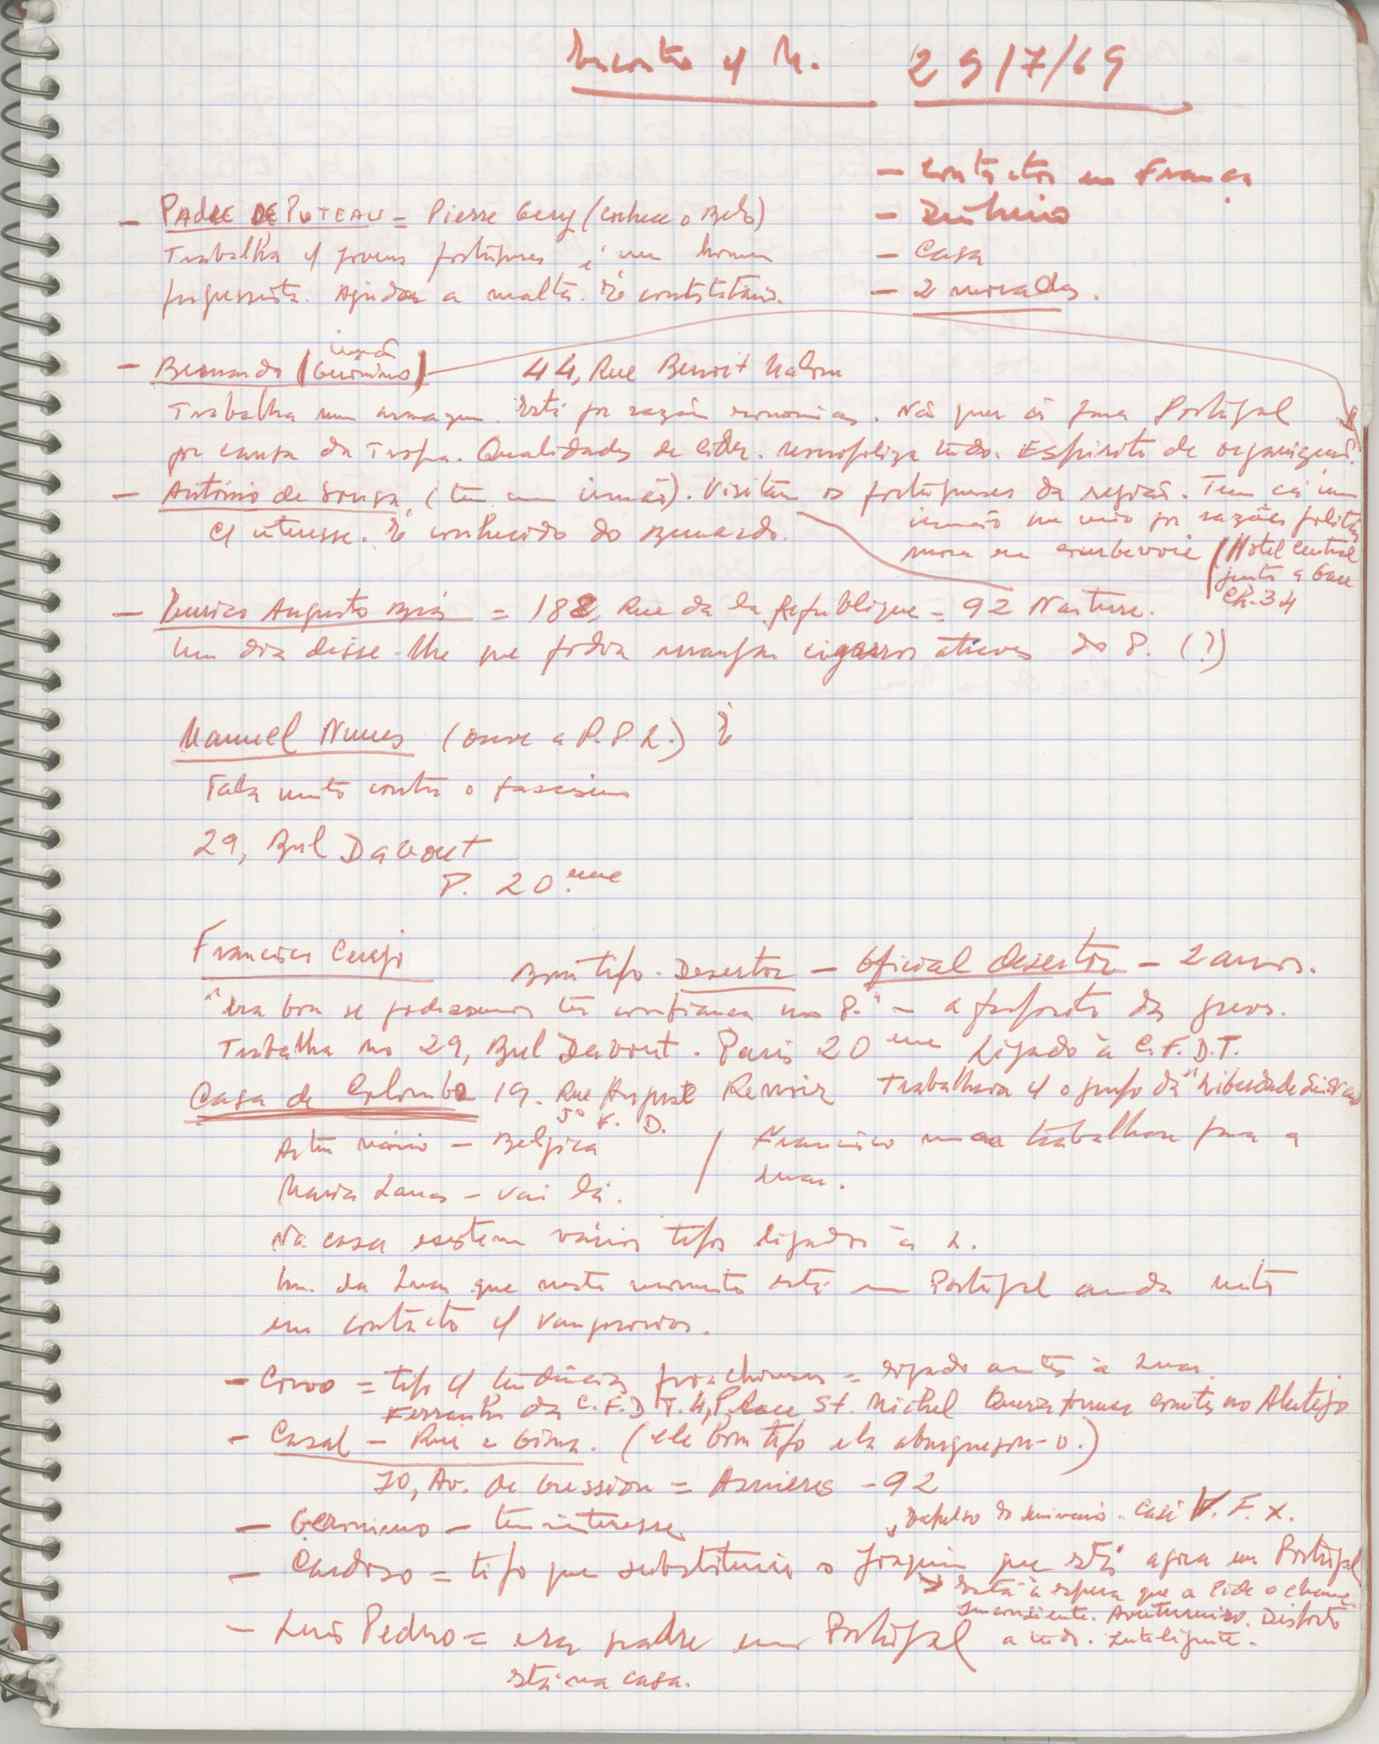 Encontro c/ M. 29/7/69
- Contactos em França
- Dinheiro
- Casa
- 2 moradas.
- PADRE DE PUTEAU = Pierre (conhece o Belo)
Trabalha c/ jovens portugueses é um homem
progressista. Ajuda a malta. É contestatário.
- Bernardo (irmão Gerónimo) 44, Rue Benoit Malon
Trabalha num armazem. Está por razões económicas. Não quer ir para Portugal
por causa da Tropa. Qualidades de lider. monopoliza tudo. Espirito de organização.
- António de Sousa, (tem um irmão). Visitam os portugueses da região. Tem cá um
c/ interesse. É conhecido do Bernardo. irmão que veio por razões politicas
mora em courbevoie (Hotel Central
junto a Gare
Ch. 34
- Augusto = 188, Rue da la Republique = 92 Nanterre.
Um dia disse-lhe que podia arranjar cigarros através do P. (?)
Manuel Nunes (ouve a R.P.L.) É
Fala muito contra o fascismo
29, Bul Davout
P. 20.eme
Francisco Cerejo Bom tipo. Desertor - Oficial desertor - 2 anos.
"era bom se podessemos ter confiança no P." - a proposito da greve.
Trabalha no 29, Bul Davout. Paris 20 eme Ligado à C.F.D.T.
Casa de Colombe 19. Rue August Renoir Trabalhava c/ o grupo da "Liberdade
5º F. D.
mário - Belgica / Francisco trabalhou para a
Maria Lamas - vai lá. Luar.
Na casa existem vários tipos ligados à L.
Um da Luar que neste momento está em Portugal anda muito
em contacto c/
- Corvo = tipo c/ tendências prochinesas = ligado antes à Luar.
da C.F.D.T. 4, Place St. Michel Queria tomar no Alentejo
- Casal - Rui e Gina. (ele bom tipo ela aburguesou-o.)
70, Av. de = Asnieres - 92
- Geronimo - tem interesse
do seminario. V. F. X.
- Cardoso = tipo que substituiu o Joaquim que está agora em Portugal
→ Está à espera que a Pide o chame.
Inconsciente. Aventureiro. Disposto
- Luis Pedro = era padre em Portugal a tudo. Inteligente.
está na casa.